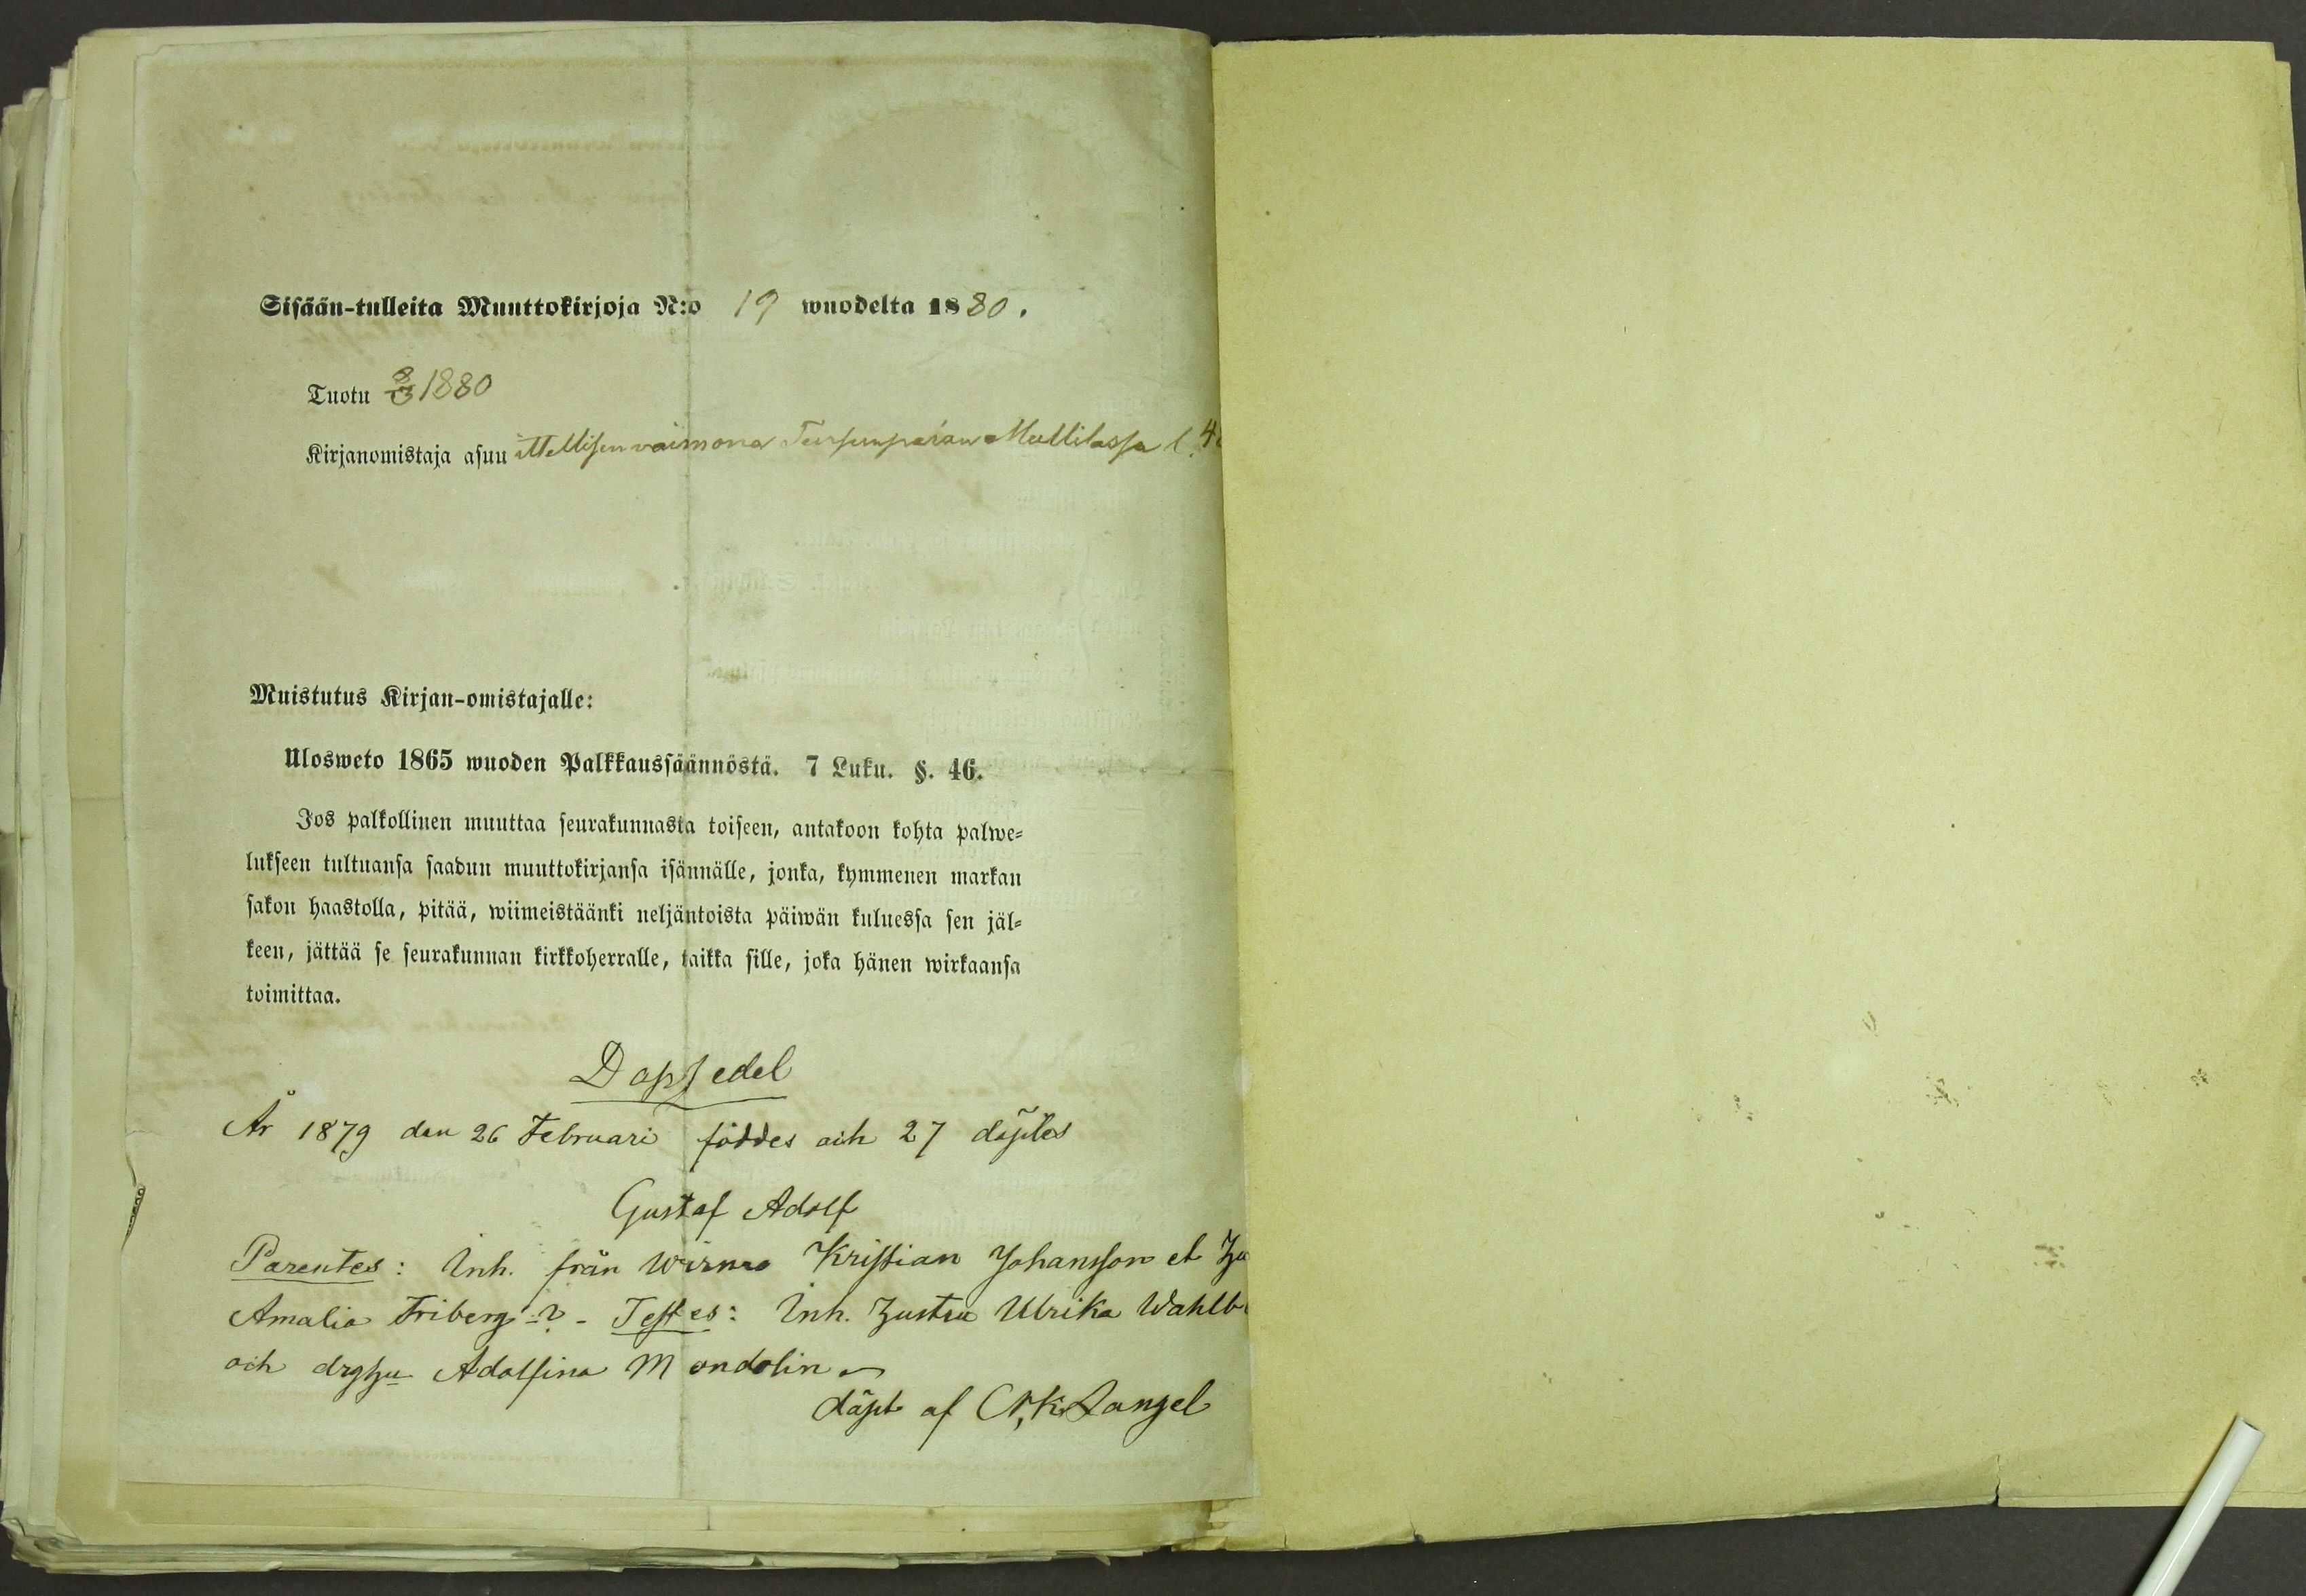 Sisään-tulleita Muuttokirjoja N:o 19 wuodelta 1880.
Tuotu 8/3 1880
Kirjanomistaja asuu Ittellisen vaimona Mullilassa l. 4
Muistutus Kirjan-omistajalle:
Ulosweto 1865 wuoden Palkkaussäännöstä. 7 Luku. §. 46.
Jos palkollinen muuttaa seurakunnasta toiseen, antakoon kohta palwe-
lukseen tultuansa saadun muuttokirjansa isännälle, jonka, kymmenen markan
sakon haastolla, pitää, wiimeistäänki neljäntoista päiwän kuluessa sen jäl-
keen, jättää se seurakunnan kirkkoherralle, taikka sille, joka hänen wirkaansa
toimittaa.
Dopsedel
År 1879 den 26 Februari föddes och 27 döptes
Gustaf Adolf
Parentes: Inh. från Wirmo Kristian Johansson et
Amalia Friberg - Testes: Inh. Ulrika Wahlb
och Adolfina Mondolin
döpt af K. Zangel